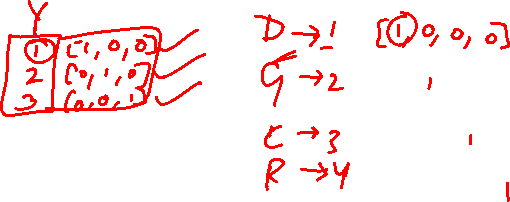 Y
1 [1, 0, 0]
2 [0, 1, 0]
3 [0, 0, 1]
D → 1 [1 0, 0, 0]
G → 2 1
C → 3 1
R → 4 1